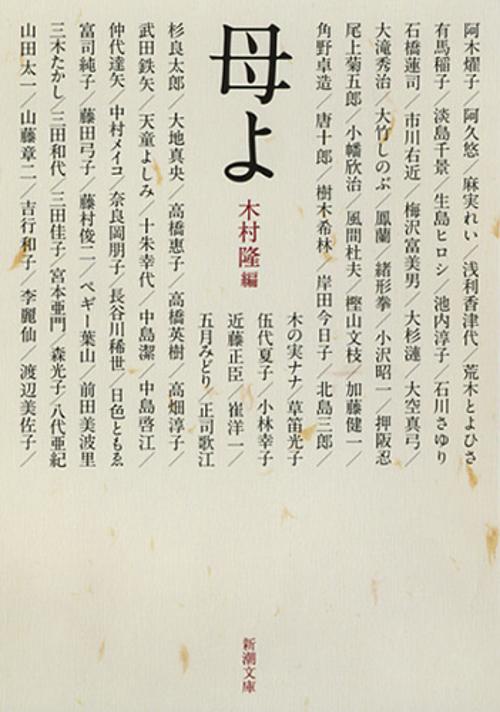 母よ
木村隆 編
阿木燿子／阿久悠／麻実れい／浅利香津代／荒木とよひさ
有馬稲子／淡島千景／生島ヒロシ／池内淳子／石川さゆり
石橋蓮司／市川右近／梅沢富美男／大杉漣／大空真弓／
大滝秀治／大竹しのぶ／鳳蘭／緒形拳／小沢昭一／押阪忍
尾上菊五郎／小幡欣治／風間杜夫／樫山文枝／加藤健一／
角野卓造／唐十郎／樹木希林／岸田今日子／北島三郎／
木の実ナナ／草笛光子
伍代夏子／小林幸子
近藤正臣／崔洋一／
五月みどり／正司歌江
杉良太郎／大地真央／高橋惠子／高橋英樹／高畑淳子／
武田鉄矢／天童よしみ／十朱幸代／中島潔／中島啓江／
仲代達矢／中村メイコ／奈良岡朋子／長谷川稀世／日色ともゑ
富司純子／藤田弓子／藤村俊二／ペギー葉山／前田美波里
三木たかし／三田和代／三田佳子／宮本亜門／森光子／八代亜紀
山田太一／山藤章二／吉行和子／李麗仙／渡辺美佐子／
新潮文庫